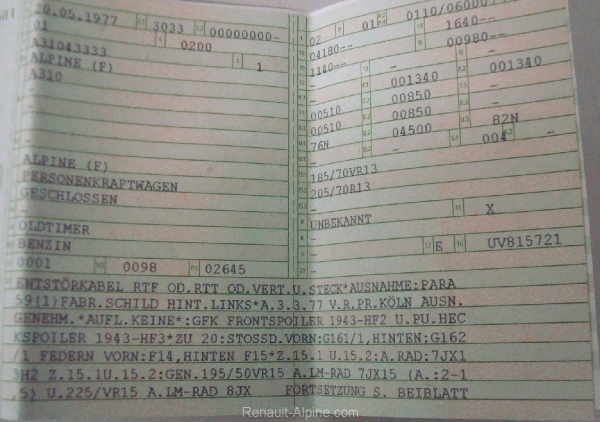 20.05.1977 3033 00000000-
01 0200
A31043333 1
ALPINE (F)
A310
-
-
-
ALPINE (F)
PERSONENKRAFTWAGEN
GESCHLOSSEN
-
OLDTIMER
BENZIN
0001 0098 02645
02 01 0110/06000
04180-- 1640--
1140-- 00980--
- -
- 001340 001340
00510 00850 -
00510 00850 -
76N 04500 82N
- - 004 -
185/70VR13
205/70R13
-
UNBEKANNT X
-
- E UV815721
-
ENTSTÖRKABEL RTF OD.RTT OD.VERT.U.STECK*AUSNAHME:PARA
59(1)FABR.SCHILD HINT.LINKS*A.3.3.77 V.R.PR.KÖLN AUSN.
GENEHM.*AUFL.KEINE*:GFK FRONTSPOILER 1943-HF2 U.PU.HEC
KSPOILER 1943-HF3*ZU 20:STOSSD.VORN:G161/1,HINTEN:G162
/1 FEDERN VORN:F14,HINTEN F15*Z.15.1 U.15.2:A.RAD:7JX1
3H2 Z.15.1U.15.2:GEN.195/50VR15 A.LM-RAD 7JX15 (A.:2-1
,5) U.225/VR15 A.LM-RAD 8JX FORTSETZUNG S. BEIBLATT
Renault-Alpine.com